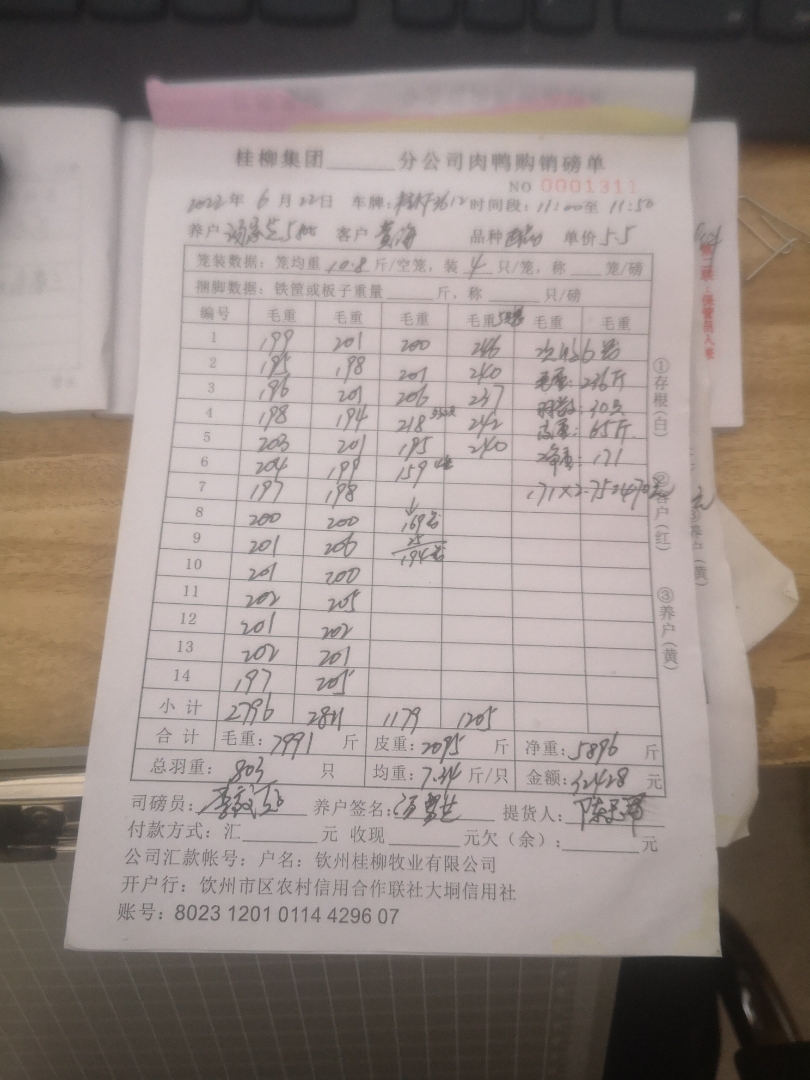 桂柳集团______分公司肉鸭购销磅单
NO 0001311
2022年 6月22日 车牌: 时间段:11:00至 11:50
养户: 客户 黄海 品种 单价 5.5
笼装数据:笼均重 10.8 斤/空笼,装 4 只/笼,称____笼/磅
捆脚数据:铁筐或板子重量____斤,称____只/磅
编号 毛重 毛重 毛重 毛重 毛重 毛重
1 199 201 200 246
2 195 198 201 240 毛重:236斤
3 196 201 206 237 30只
4 198 194 218 242 皮重:65斤
5 203 201 195 240 净重:171
6 204 199 159
7 197 198 171×2.75=470元
8 200 200 169
9 201 206 25
10 201 200 194
11 202 205
12 201 202
13 202 201
14 197 205
小计 2796 2811 1179 1205
合计 毛重:7991 斤 皮重:2095 斤 净重:5896 斤
总羽重:803 只 均重:7.34 斤/只 金额:32428 元
司磅员: 养户签名: 提货人:
付款方式:汇______元 收现______元欠(余):______元
公司汇款帐号:户名:钦州桂柳牧业有限公司
开户行:饮州市区农村信用合作联社大垌信用社
账号:8023 1201 0114 4296 07
①存根(白)
②客户(红)
③养户(黄)